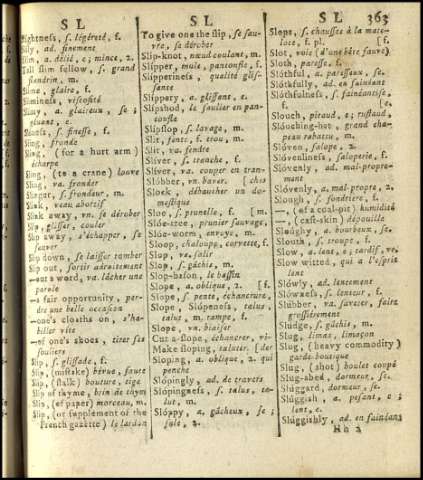 S L
S L
S L 363
Slightness, s. légéreté, f.
Slily, ad. finement
Slim, a. délié, e; mince, 2.
Tall slim fellow, s. grand
flandrin, m.
Slime, glaire, f.
Sliminess, viscosité
Slimy, a. glaireux, se;
gluant, e.
Sliness, s. finesse, f.
Sling, fronde
Sling, (for a hurt arm)
écharpe
Sling, (to a crane) louve
Sling, va. fronder
Slinger, s. frondeur, m.
Slink, veau abortif
Slink away, vn. se dérober
Slip, glisser, couler
Slip away, s'échapper, se
sauver
Slip down, se laisser tomber
Slip out, sortir adroitement
—out a word, va. lâcher une
parole
—a fair opportunity, per-
dre une belle occasion
—one's cloaths on, s'ha-
biller vîte
—of one's shoes, tirer ses
souliers
Slip, s. glissade, f.
Slip, (mistake) bévue, faute
Slip, (stalk) bouture, tige
Slip of thyme, brin de thym
Slip, (of paper) morceau, m.
Slip, (or supplement of the
French gazette) le lardon
To give one the slip, se sau-
ver, se dérober
Slip-knot, nœud coulant, m.
Slipper, mule, pantoufle, f.
Slipperiness, qualité glis-
sante
Slippery, a. glissant, e.
Slipshod, le soulier en pan-
toufle
Slipslop, s. lavage, m.
Slit, fente, f. trou, m.
Slit, va. fendre
Sliver, s. tranche, f.
Sliver, va. couper en tran-
Slobber, vn. baver [ches
Sloek, débaucher un do-
mestique
Sloe, s. prunelle, f. [m.
Sloe-tree, prunier sauvage,
Sloe-worm, anvoye, m.
Sloop, chaloupe, corvette, f.
Slop, va. salir
Slop, s. gâchis, m.
Slop-bason, le bassin
Slope, a. oblique, 2. [f.
Slope, s. pente, échancrure,
Slope, Slopeness, talus,
talut, m. rampe, f.
Slope, vn. biaiser
Cut a-slope, échancrer, vi-
Make sloping, taluter. [der
Sloping, a. oblique, 2. qui
penche
Slopingly, ad. de travers
Slopingness, s. talus, ta-
lut, m.
Sloppy, a. gâcheux, se;
sale, 2.
Slops, s. chausses à la mate-
lote, f. pl. [f.
Slot, voie (d'une bête fauve)
Sloth, paresse, f.
Slothful, a. paresseux, se.
Slothfully, ad. en fainéant
Slothfulness, s. fainéantise,
f. [e.
Slouch, pitaud, e; rustaud,
Slouching-hat, grand cha-
peau rabattu, m.
Sloven, salope, 2.
Slovenliness, saloperie, f.
Slovenly, ad. mal-propre-
ment
Slovenly, a. mal-propre, 2.
Slough, s. fondrière, f.
—, (of a coal-pit) humidité
—, (cast-skin) dépouille
Sloughy, a. bourbeux, se.
Slouth, s. troupe, f.
Slow, a. lent, e; tardif, ve.
Slow witted, qui a l'esprit
lent
Slowly, ad. lentement
Slowness, s. lenteur, f.
Slubber, va. saveter, faire
grossièrement
Sludge, s. gâchis, m.
Slug, limas, limaçon
Slug, (heavy commodity)
garde-boutique
Slug, (shot) boulet coupé
Slug-abed, dormeur, se.
Sluggard, dormeur, se.
Sluggish, a. pesant, e;
lent, e.
Sluggishly, ad. en fainéant
Hh 2